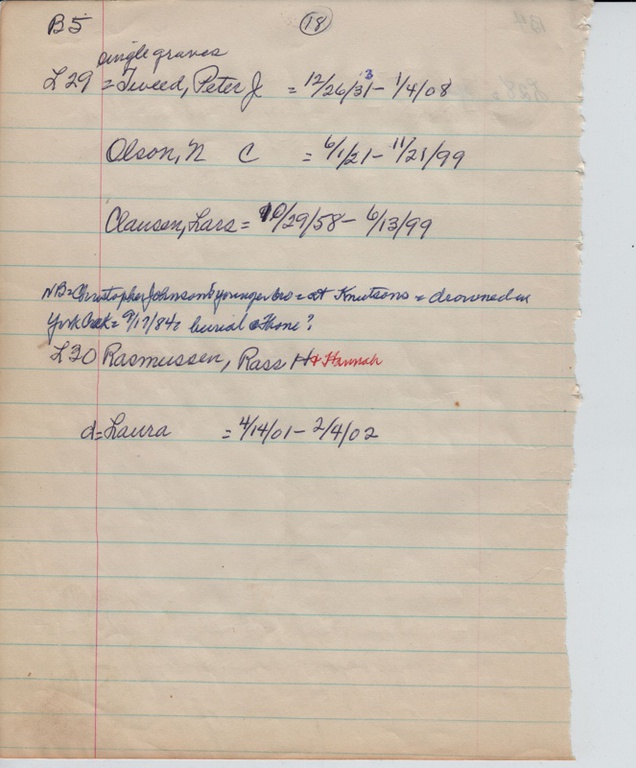 B5 18
single graves
L29 = Tweed, Peter J = 12/26/33 - 1/4/08
Olson, N C = 6/1/21 - 11/21/99
Clausen, Lars = 10/29/58 - 6/13/99
NB = Christopher Johnson's younger bro = at Knutsons = drowned in
York Creek = 9/17/84 = burial @ home?
L30 Rasmussen, Rass H + Hannah
d = Laura = 4/14/01 - 2/4/02